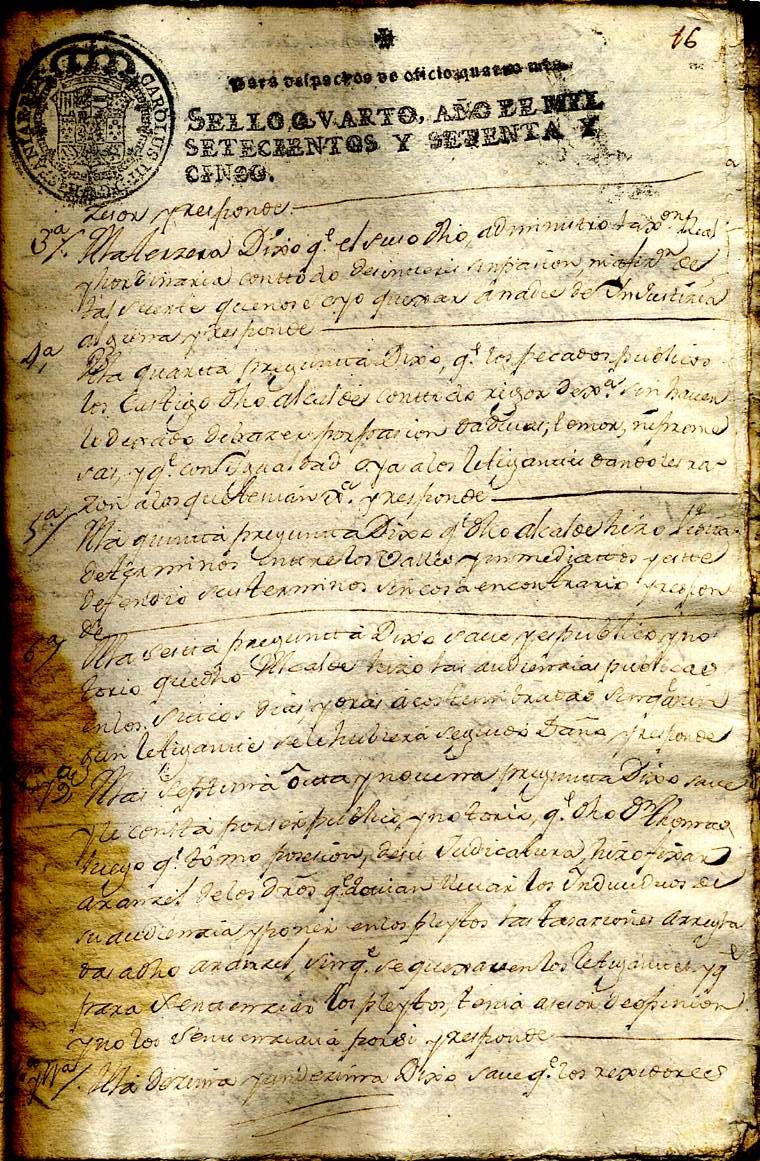 16
Para despachos de oficio quatro mrs.
SELLO QVARTO, AÑO DE MYL
SETECIENTOS Y SETENTA Y
CINCO.
CAROLUS III
zesor y responde
3ª A la terzera Dixo q.e el suso dho, administro la xon Real
y hordinaria con ttodo desinteres sin pasion, ni
tal suerte que no se oyo quexar a nadie de Injusticia
alguna y responde
4ª A la quarta pregunta Dixo, q.e los pecados publicos
los Castigo dho alcalde con ttodo rigor de xª sin haver
le dexado de hazer por pasion dadivas, temor, ni prome
sas, y q.e con Igualdad oya a los letigantes dandoles ra
zon a los que tenian y responde
5ª A la quinta pregunta Dixo q.e dho alcalde hizo
de terminos entre los Valles ynmediattos y este
defendio sus terminos sin cosa en contrario y respon
de
6ª A la sesta pregunta Dixo save y es publico y no
torio que dho Alcalde hizo las audienzias publicas
en los sitios dias y oras acostumbradas sin q.e a nin
gun letigante se le hubiera seguido Daño y responde
7ª A las septima octta y novena pregunta Dixo save
y le consta por ser publico, y notorio, q.e dho Dn Thomas
luego q.e tomo posesion, de su Judicatura, hizo fixar
aranzel de los dros q.e devian llevar los Individuos de
su audienzia y poner en los pleytos las tasaziones arregla
das a dho aranzel, sin q.e se quexasen los letigantes y q.e
para sentenziar los pleytos, tenia asesor de opinion
y no los sentenziava por si y responde
A la dezima y undezima Dixo save q.e los rexidores